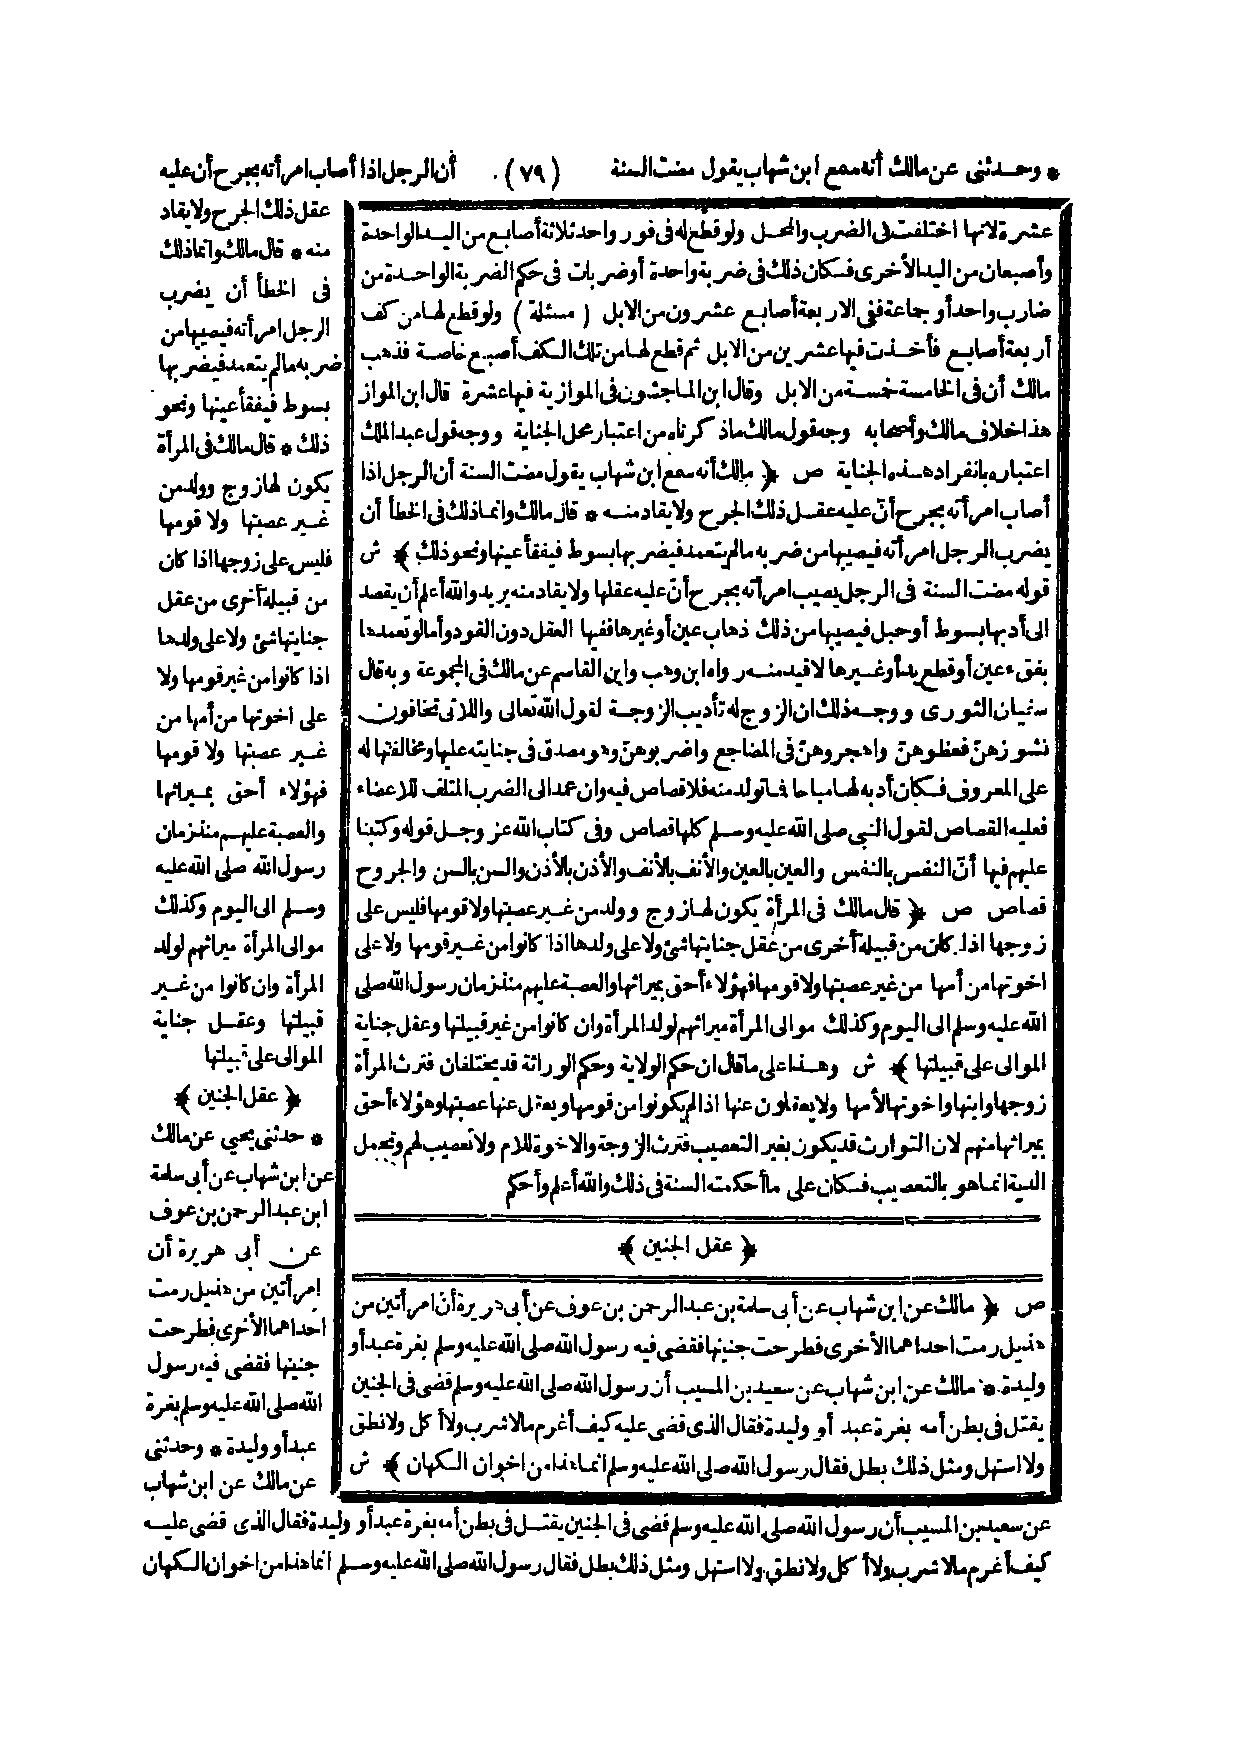 * وحدثنى عن مالك أنه سمع ابن شهاب يقول مضت السنة (٧٩) أن الرجل اذا أصاب امرأته بجرح أن عليه
عقل ذلك الجرح ولا يقاد
منه * قال مالك وانما ذلك
فى الخطأ أن يضرب
الرجل امرأته فيصيبها من
ضربه ما لم يتعمد فيضربها
بسوط فيفقأ عينها ونحو
ذلك * قال مالك فى المرأة
يكون لها زوج وولد من
غير عصبتها ولا قومها
فليس على زوجها اذا كان
من قبيلة أخرى من عقل
جنايتها شئ ولا على ولدها
اذا كانوا من غير قومها ولا
على اخوتها من أمها من
غير عصبتها ولا قومها
فهؤلاء أحق بميراثها
والعصبة عليهم منذ زمان
رسول الله صلى الله عليه
وسلم الى اليوم وكذلك
موالى المرأة ميراثهم لولد
المرأة وان كانوا من غير
قبيلتها وعقل جناية
الموالى على قبيلتها
﴿ عقل الجنين ﴾
* حدثنى يحيى عن مالك
عن ابن شهاب عن أبى سلمة
ابن عبد الرحمن بن عوف
عن أبى هريرة أن
امرأتين من هذيل رمت
احداهما الأخرى فطرحت
جنينها فقضى فيه رسول
الله صلى الله عليه وسلم بغرة
عبد أو وليدة * وحدثنى
عن مالك عن ابن شهاب
عشرة لانها اختلفت فى الضرب والمحل ولو قطع له فى فور واحد ثلاثة أصابع من اليد الواحدة
وأصبعان من اليد الأخرى فكان ذلك فى ضربة واحدة أو ضربات فى حكم الضربة الواحدة من
ضارب واحد أو جماعة ففى الاربعة أصابع عشرون من الابل ( مسئلة ) ولو قطع لها من كف
أربعة أصابع فأخذت فيها عشرين من الابل ثم قطع لها من تلك الكف أصبع خاصة فذهب
مالك أن فى الخامسة خمسة من الابل وقال ابن الماجشون فى الموازية فيها عشرة قال ابن المواز
هذا خلاف مالك وأصحابه وجه قول مالك ما ذكرناه من اعتبار محل الجناية ووجه قول عبد الملك
اعتباره بانفراد هذه الجناية ص ﴿ مالك أنه سمع ابن شهاب يقول مضت السنة أن الرجل اذا
أصاب امرأته بجرح أنّ عليه عقل ذلك الجرح ولا يقاد منه * قال مالك وانما ذلك فى الخطأ أن
يضرب الرجل امرأته فيصيبها من ضربه ما لم يتعمد فيضربها بسوط فيفقأ عينها ونحو ذلك ﴾ ش
قوله مضت السنة فى الرجل يصيب امرأته بجرح أنّ عليه عقلها ولا يقاد منه يريد والله أعلم أن يقصد
الى أدبها بسوط أو حبل فيصيبها من ذلك ذهاب عين أو غيرها ففيها العقل دون القود وأما لو تعمدها
بفقء عين أو قطع يد أو غيرها لاقيد منه رواه ابن وهب وابن القاسم عن مالك فى المجموعة وبه قال
سفيان الثورى ووجه ذلك ان الزوج له تأديب الزوجة لقول الله تعالى واللاتى تخافون
نشوزهنّ فعظوهنّ واهجروهنّ فى المضاجع واضربوهنّ وهو مصدق فى جنايته عليها ومخالفتها له
على المعروف فكان أدبه لها مباحا فما تولد منه فلا قصاص فيه وان عمد الى الضرب المتلف للاعضاء
فعليه القصاص لقول النبى صلى الله عليه وسلم كلها قصاص وفى كتاب الله عز وجل قوله وكتبنا
عليهم فيها أنّ النفس بالنفس والعين بالعين والأنف بالأنف والأذن بالأذن والسن بالسن والجروح
قصاص ص ﴿ قال مالك فى المرأة يكون لها زوج وولد من غير عصبتها ولا قومها فليس على
زوجها اذا كان من قبيلة أخرى من عقل جنايتها شئ ولا على ولدها اذا كانوا من غير قومها ولا على
اخوتها من أمها من غير عصبتها ولا قومها فهؤلاء أحق بميراثها والعصبة عليهم منذ زمان رسول الله صلى
الله عليه وسلم الى اليوم وكذلك موالى المرأة ميراثهم لولد المرأة وان كانوا من غير قبيلتها وعقل جناية
الموالى على قبيلتها ﴾ ش وهذا على ما قال ان حكم الولاية وحكم الوراثة قد يختلفان فترث المرأة
زوجها وابنها واخوتها لأمها ولا يعقلون عنها اذا لم يكونوا من قومها ويعقل عنها عصبتها وهؤلاء أحق
بميراثها منهم لان التوارث قد يكون بغير التعصيب فترث الزوجة والاخوة للام ولا تعصيب لهم وتحمل
الدية انما هو بالتعصيب فكان على ما أحكمته السنة فى ذلك والله أعلم وأحكم
﴿ عقل الجنين ﴾
ص ﴿ مالك عن ابن شهاب عن أبى سلمة بن عبد الرحمن بن عوف عن أبى هريرة أنّ امرأتين من
هذيل رمت احداهما الأخرى فطرحت جنينها فقضى فيه رسول الله صلى الله عليه وسلم بغرة عبد أو
وليدة * مالك عن ابن شهاب عن سعيد بن المسيب أن رسول الله صلى الله عليه وسلم قضى فى الجنين
يقتل فى بطن أمه بغرة عبد أو وليدة فقال الذى قضى عليه كيف أغرم ما لا شرب ولا أكل ولا نطق
ولا استهل ومثل ذلك بطل فقال رسول الله صلى الله عليه وسلم انما هذا من اخوان الكهان ﴾ ش
عن سعيد بن المسيب أن رسول الله صلى الله عليه وسلم قضى فى الجنين يقتل فى بطن أمه بغرة عبد أو وليدة فقال الذى قضى عليه
كيف أغرم ما لا شرب ولا أكل ولا نطق ولا استهل ومثل ذلك بطل فقال رسول الله صلى الله عليه وسلم انما هذا من اخوان الكهان